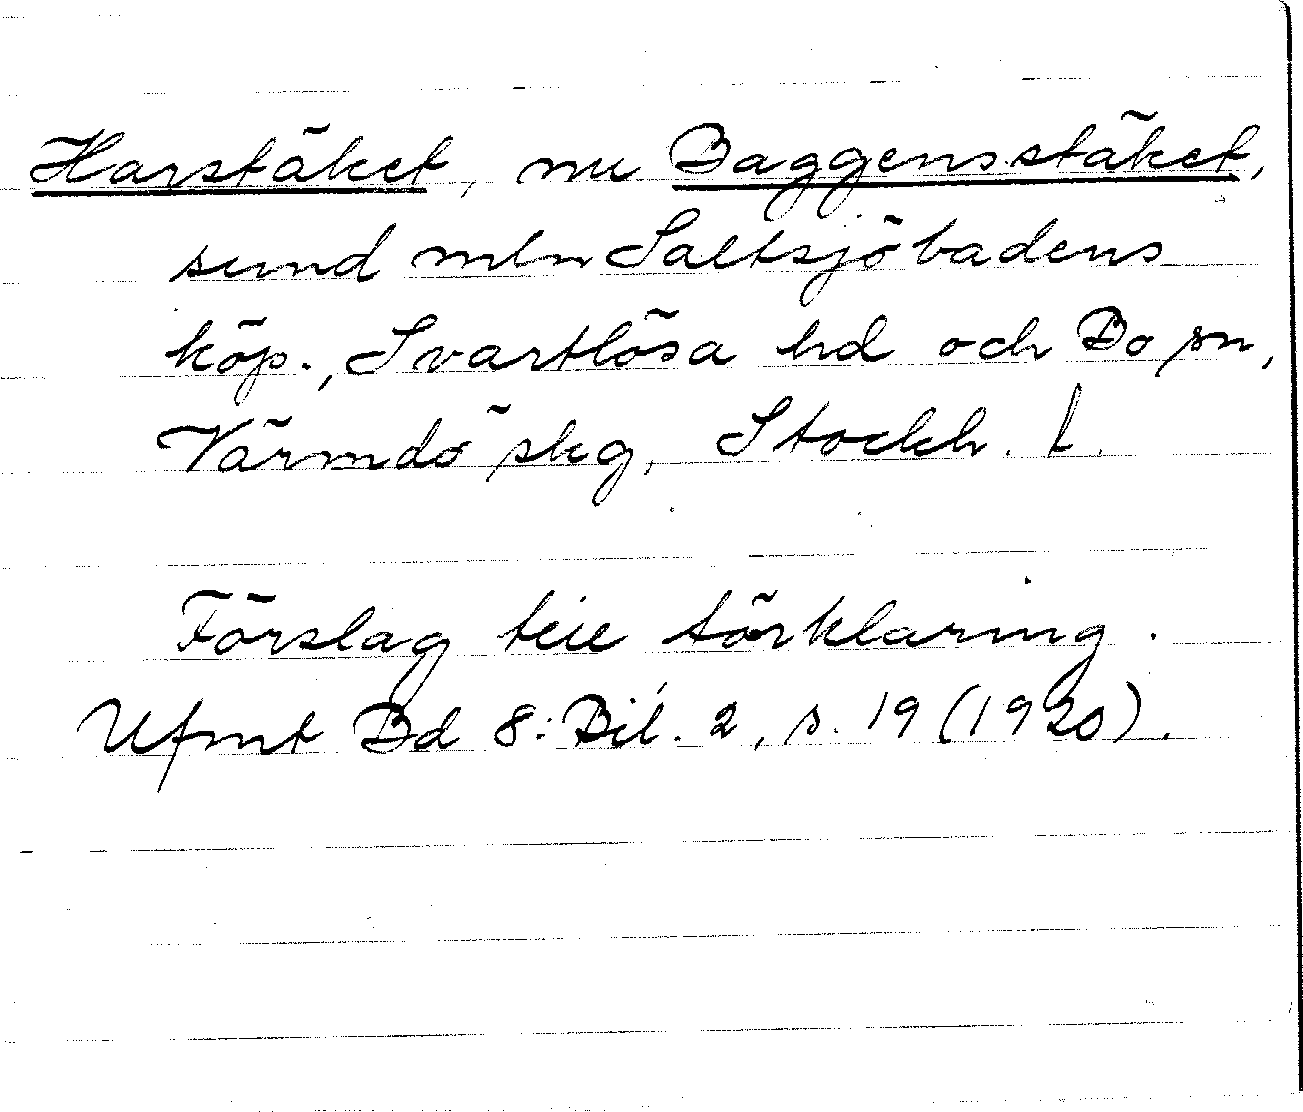 Harstäket, nu Baggensstäket,
sund mln Saltsjöbadens
köp., Svartlösa hd och Bo sn,
Värmdö skg, Stockh. l.
Förslag till förklaring.
Ufmt Bd 8: Bil. 2, s. 19 (1920).